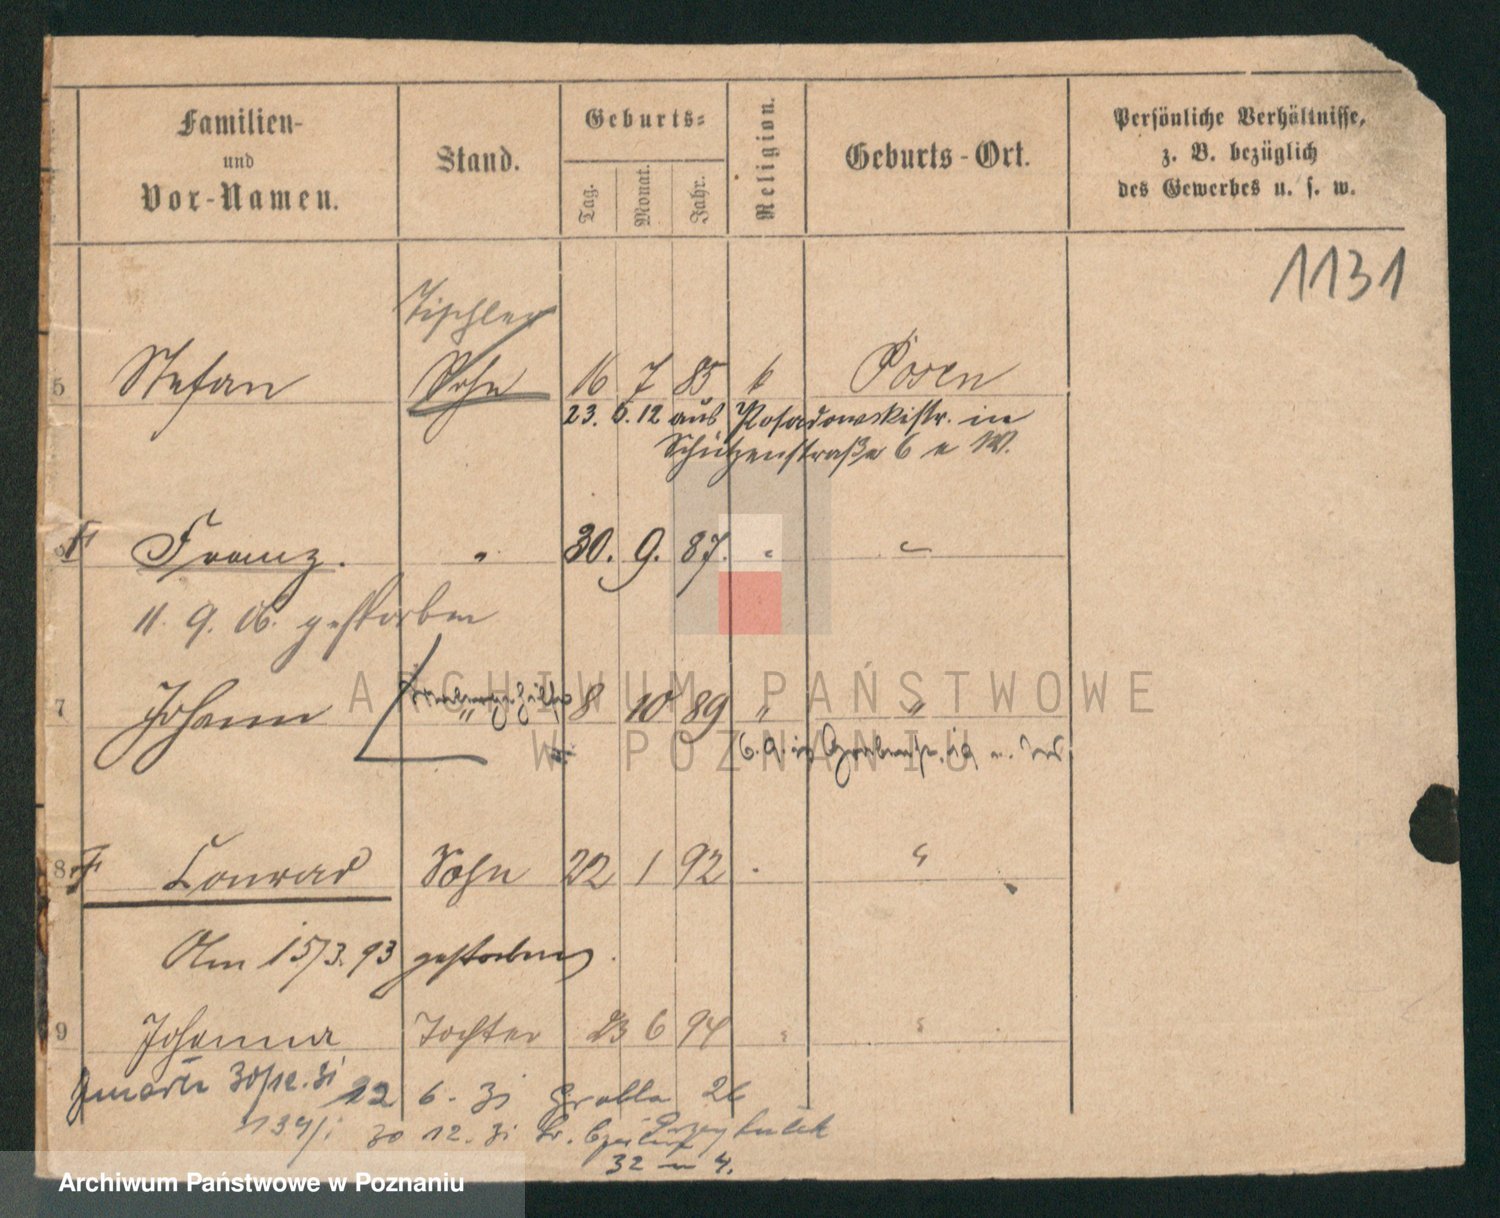 Familien-
und
Vor-Namen.
Stand.
Geburts-
Tag.
Monat.
Jahr.
Religion.
Geburts-Ort.
Persönliche Verhältnisse,
z. B. bezüglich
des Gewerbes u. s. w.
1131
Tischler
5 Stefan Sohn 16 7 85 k Posen
23. 6. 12 aus Posadowskistr. in
Schützenstraße 6 e W.
6 F Franz. " 30. 9. 87. " "
11. 9. 06. gestorben
7 Johann " 8 10 89 " "
6. 9. Grabenstr.
8 F Conrad Sohn 22 1 92 " "
Am 15/3. 93 gestorben.
9 Johanna Tochter 23 6 94 " "
zmarła 30/12. 31 22 6. 31 Grobla 26
30 12. 31 Przybułek
32 4.
ARCHIWUM PAŃSTWOWE
W POZNANIU
Archiwum Państwowe w Poznaniu